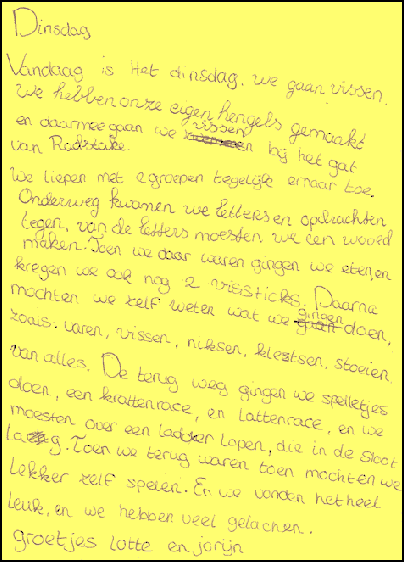 Dinsdag
Vandaag is Het dinsdag. we gaan vissen.
We hebben onze eigen hengels gemaakt
en daarmee gaan we vissen bij het gat
van Radstake.
We liepen met 2 groepen tegelijk ernaar toe.
Onderweg kwamen we letters en opdrachten
tegen, van de letters moesten we een woord
maken. Toen we daar waren gingen we eten, en
kregen we ook nog 2 vissticks. Daarna
mochten we zelf weten wat we gingen doen,
zoals. varen, vissen, niksen, kletsen, stoeien,
van alles. De terug weg gingen we spelletjes
doen, een krattenrace, en lattenrace, en we
moesten over een ladder lopen, die in de sloot
lag. Toen we terug waren toen mochten we
Lekker zelf spelen. En we vonden het heel
leuk, en we hebben veel gelachen.
groetjes lotte en jorijn